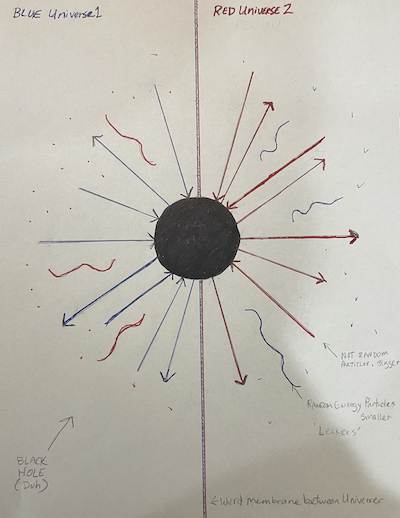 BLUE Universe 1
RED Universe 2
NOT RANDOM
Bigger
Random Energy Particles
Smaller
'Leakers'
BLACK
HOLE
(Duh)
← Weird Membrane between Universes